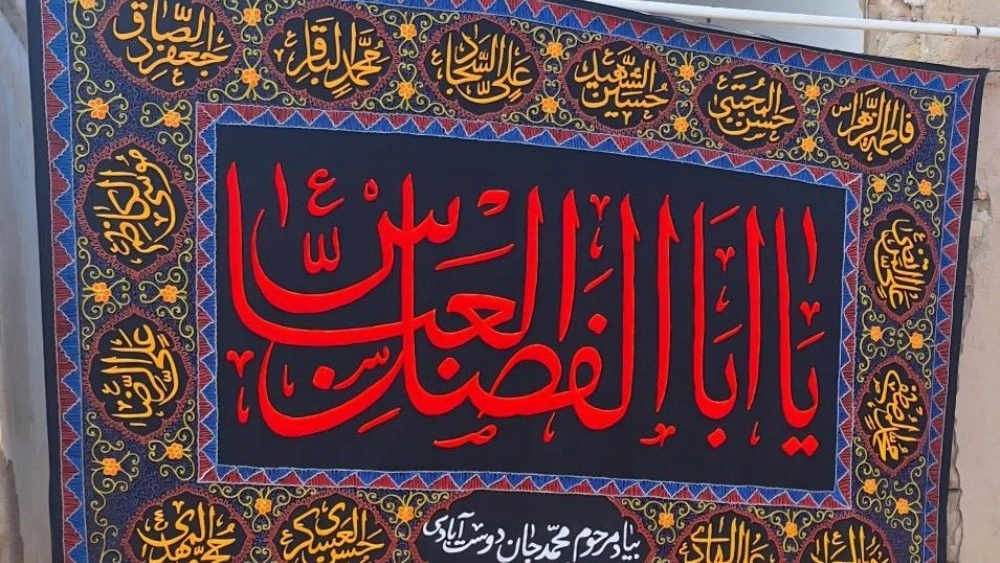 فاطمة الزهراء
حسن المجتبی
حسین الشهید
علی السجاد
محمد الباقر
جعفر الصادق
علی المرتضی
یا ابا الفضل العباس
ع
موسی الکاظم
علی الرضا
علی الهادی
بیاد مرحوم محمد جان دوست آبادی
حسن العسکری
حجة المهدی